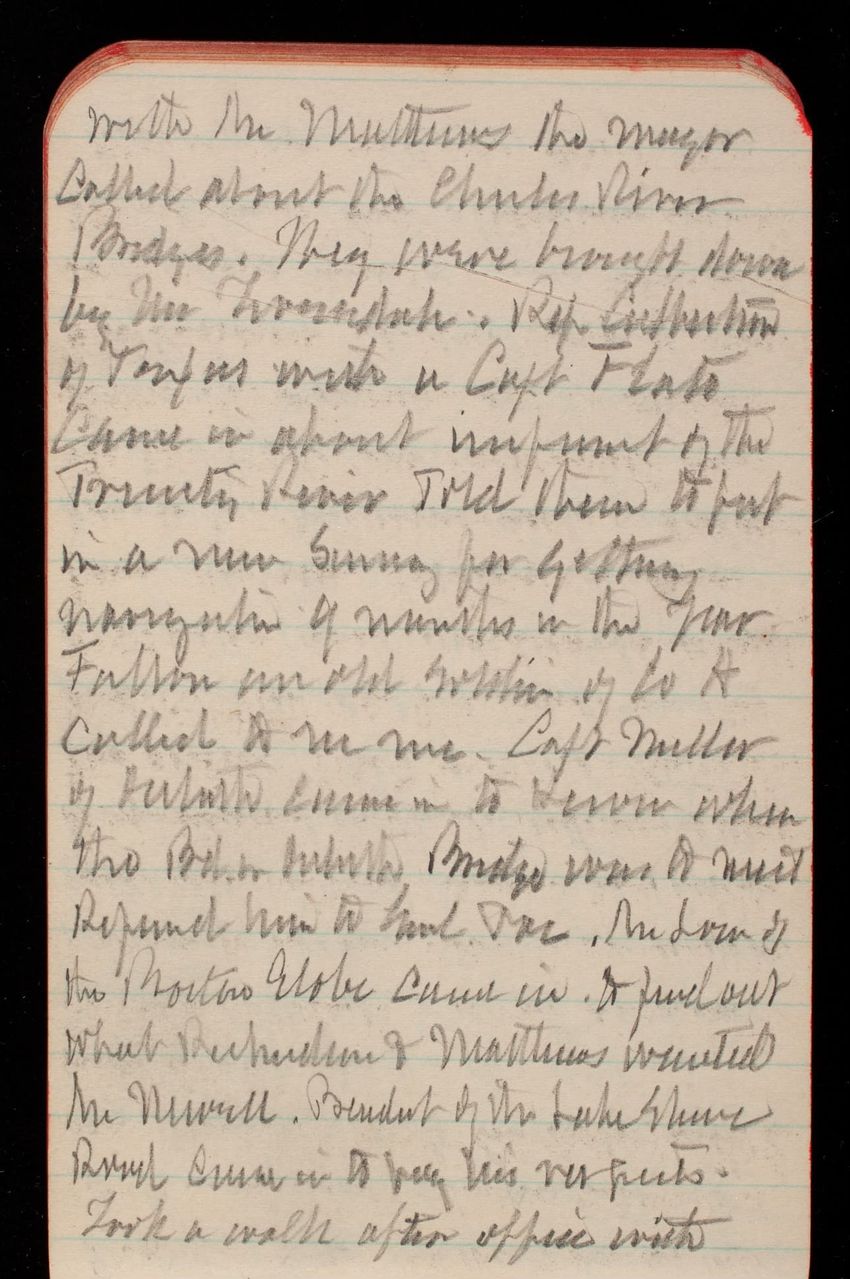 with Mr Matthews the mayor
Called about the Charles River
Bridges. They were brought down
by Mr Rep Culberson
of Texas with a Capt Flato
Came in about impmt of the
Trinity River Told them to put
in a new Survey for getting
navigation 9 months in the year
Fallon an old soldier of Co H
Called to see me. Capt Miller
of Duluth came in to know when
the Bd. on Duluth Bridge was to meet
Refered him to Genl Poe. Mr Low of
the Boston Globe came in. to find out
what Richardson & Matthews wanted
Mr Newell. Presdent of the Lake Shore
Road came in to pay his respects.
Took a walk after office with